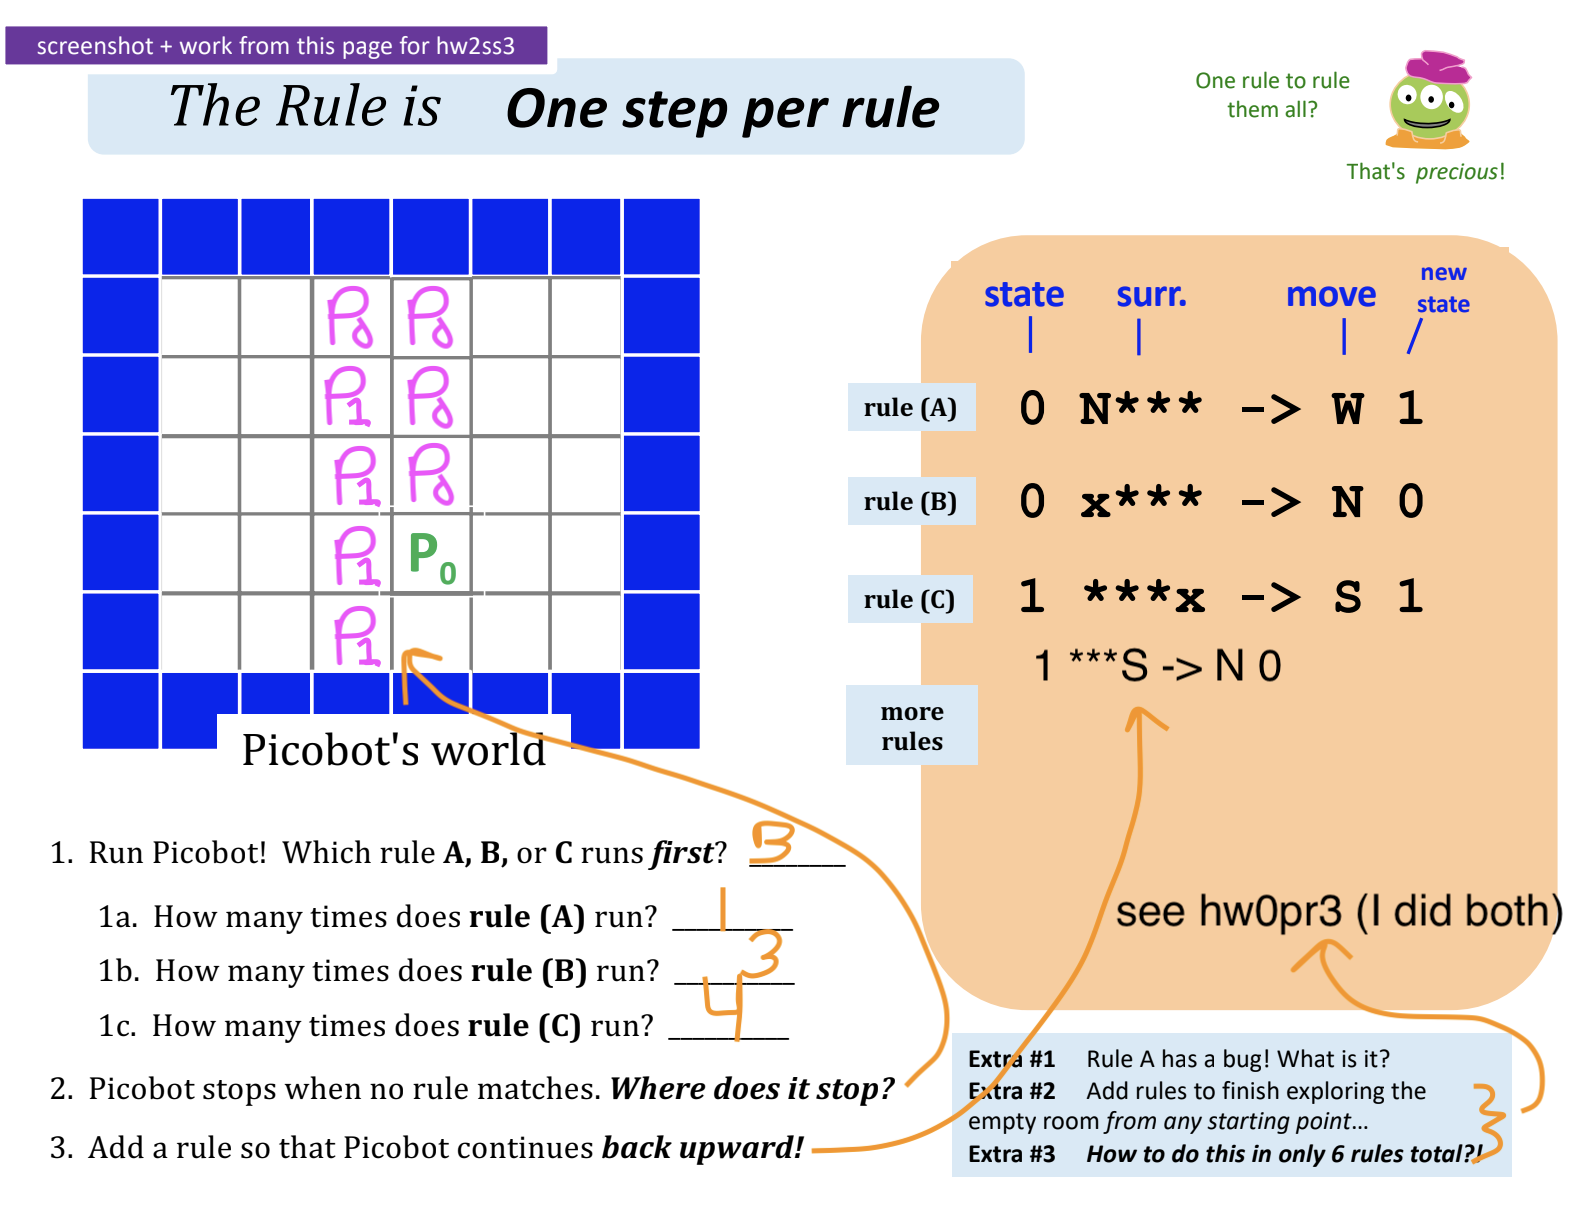 screenshot + work from this page for hw2ss3
The Rule is One step per rule
One rule to rule
them all?
That's precious!
state surr. move new state
rule (A) 0 N*** -> W 1
rule (B) 0 x*** -> N 0
rule (C) 1 ***x -> S 1
1 ***S -> N 0
more
rules
P0 P0
P1 P0
P1 P0
P1 P0
P1
Picobot's world
see hw0pr3 (I did both)
1. Run Picobot! Which rule A, B, or C runs first? B
1a. How many times does rule (A) run? 1
1b. How many times does rule (B) run? 3
1c. How many times does rule (C) run? 4
2. Picobot stops when no rule matches. Where does it stop?
3. Add a rule so that Picobot continues back upward!
Extra #1 Rule A has a bug! What is it?
Extra #2 Add rules to finish exploring the
empty room from any starting point...
Extra #3 How to do this in only 6 rules total?!